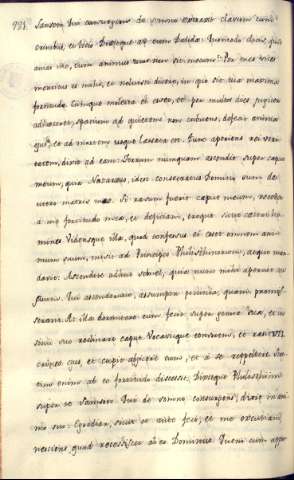 Samson! Qui consurgens de somno extraxit clavum cum
crinibus, et licio. Dixitque ad eum Dalida: Quomodo dicis, quod
amas me, cum animus tuus non sit mecum? Per tres vices
mentitus es mihi, et noluisti dicere, in quo sit tua maxima
fortitudo. Cumque molesta ei esset, et per multos dies jugiter
adhaereret, spatium ad quietem non tribuens, defecit anima
ejus, et ad mortem usque lassata est. Tunc aperiens rei veri
tatem, dixit ad eam: Ferrum numquam ascendit super caput
meum, quia Nazaraeus, idest consecratus Domino sum de u
tero matris meae. Si rasum fuerit caput meum, recedet
a me fortitudo mea, et deficiam, eroque sicut ceteri ho
mines. Vidensque illa, quod confessus ei esset omnem ani
mum suum, misit ad Principes Philisthinorum, atque man
davit: Ascendite adhuc semel, quia nunc mihi aperuit cor
suum. Qui ascenderunt, assumpta pecunia, quam promis
serant. At illa dormire eum fecit super genua sua, et in
sinu suo reclinare caput. Vocavitque tonsorem, et rasit VII.
crines ejus, et coepit abjicere eum, et a se repellere. Sta
tim enim ab eo fortitudo discessit. Dixitque: Philisthiim
super te Samson! Qui de somno consurgens, dixit in ani
mo suo: Egrediar, sicut et ante feci, et me excutiam,
nesciens, quod recessisset ab eo Dominus. Quem cum appre